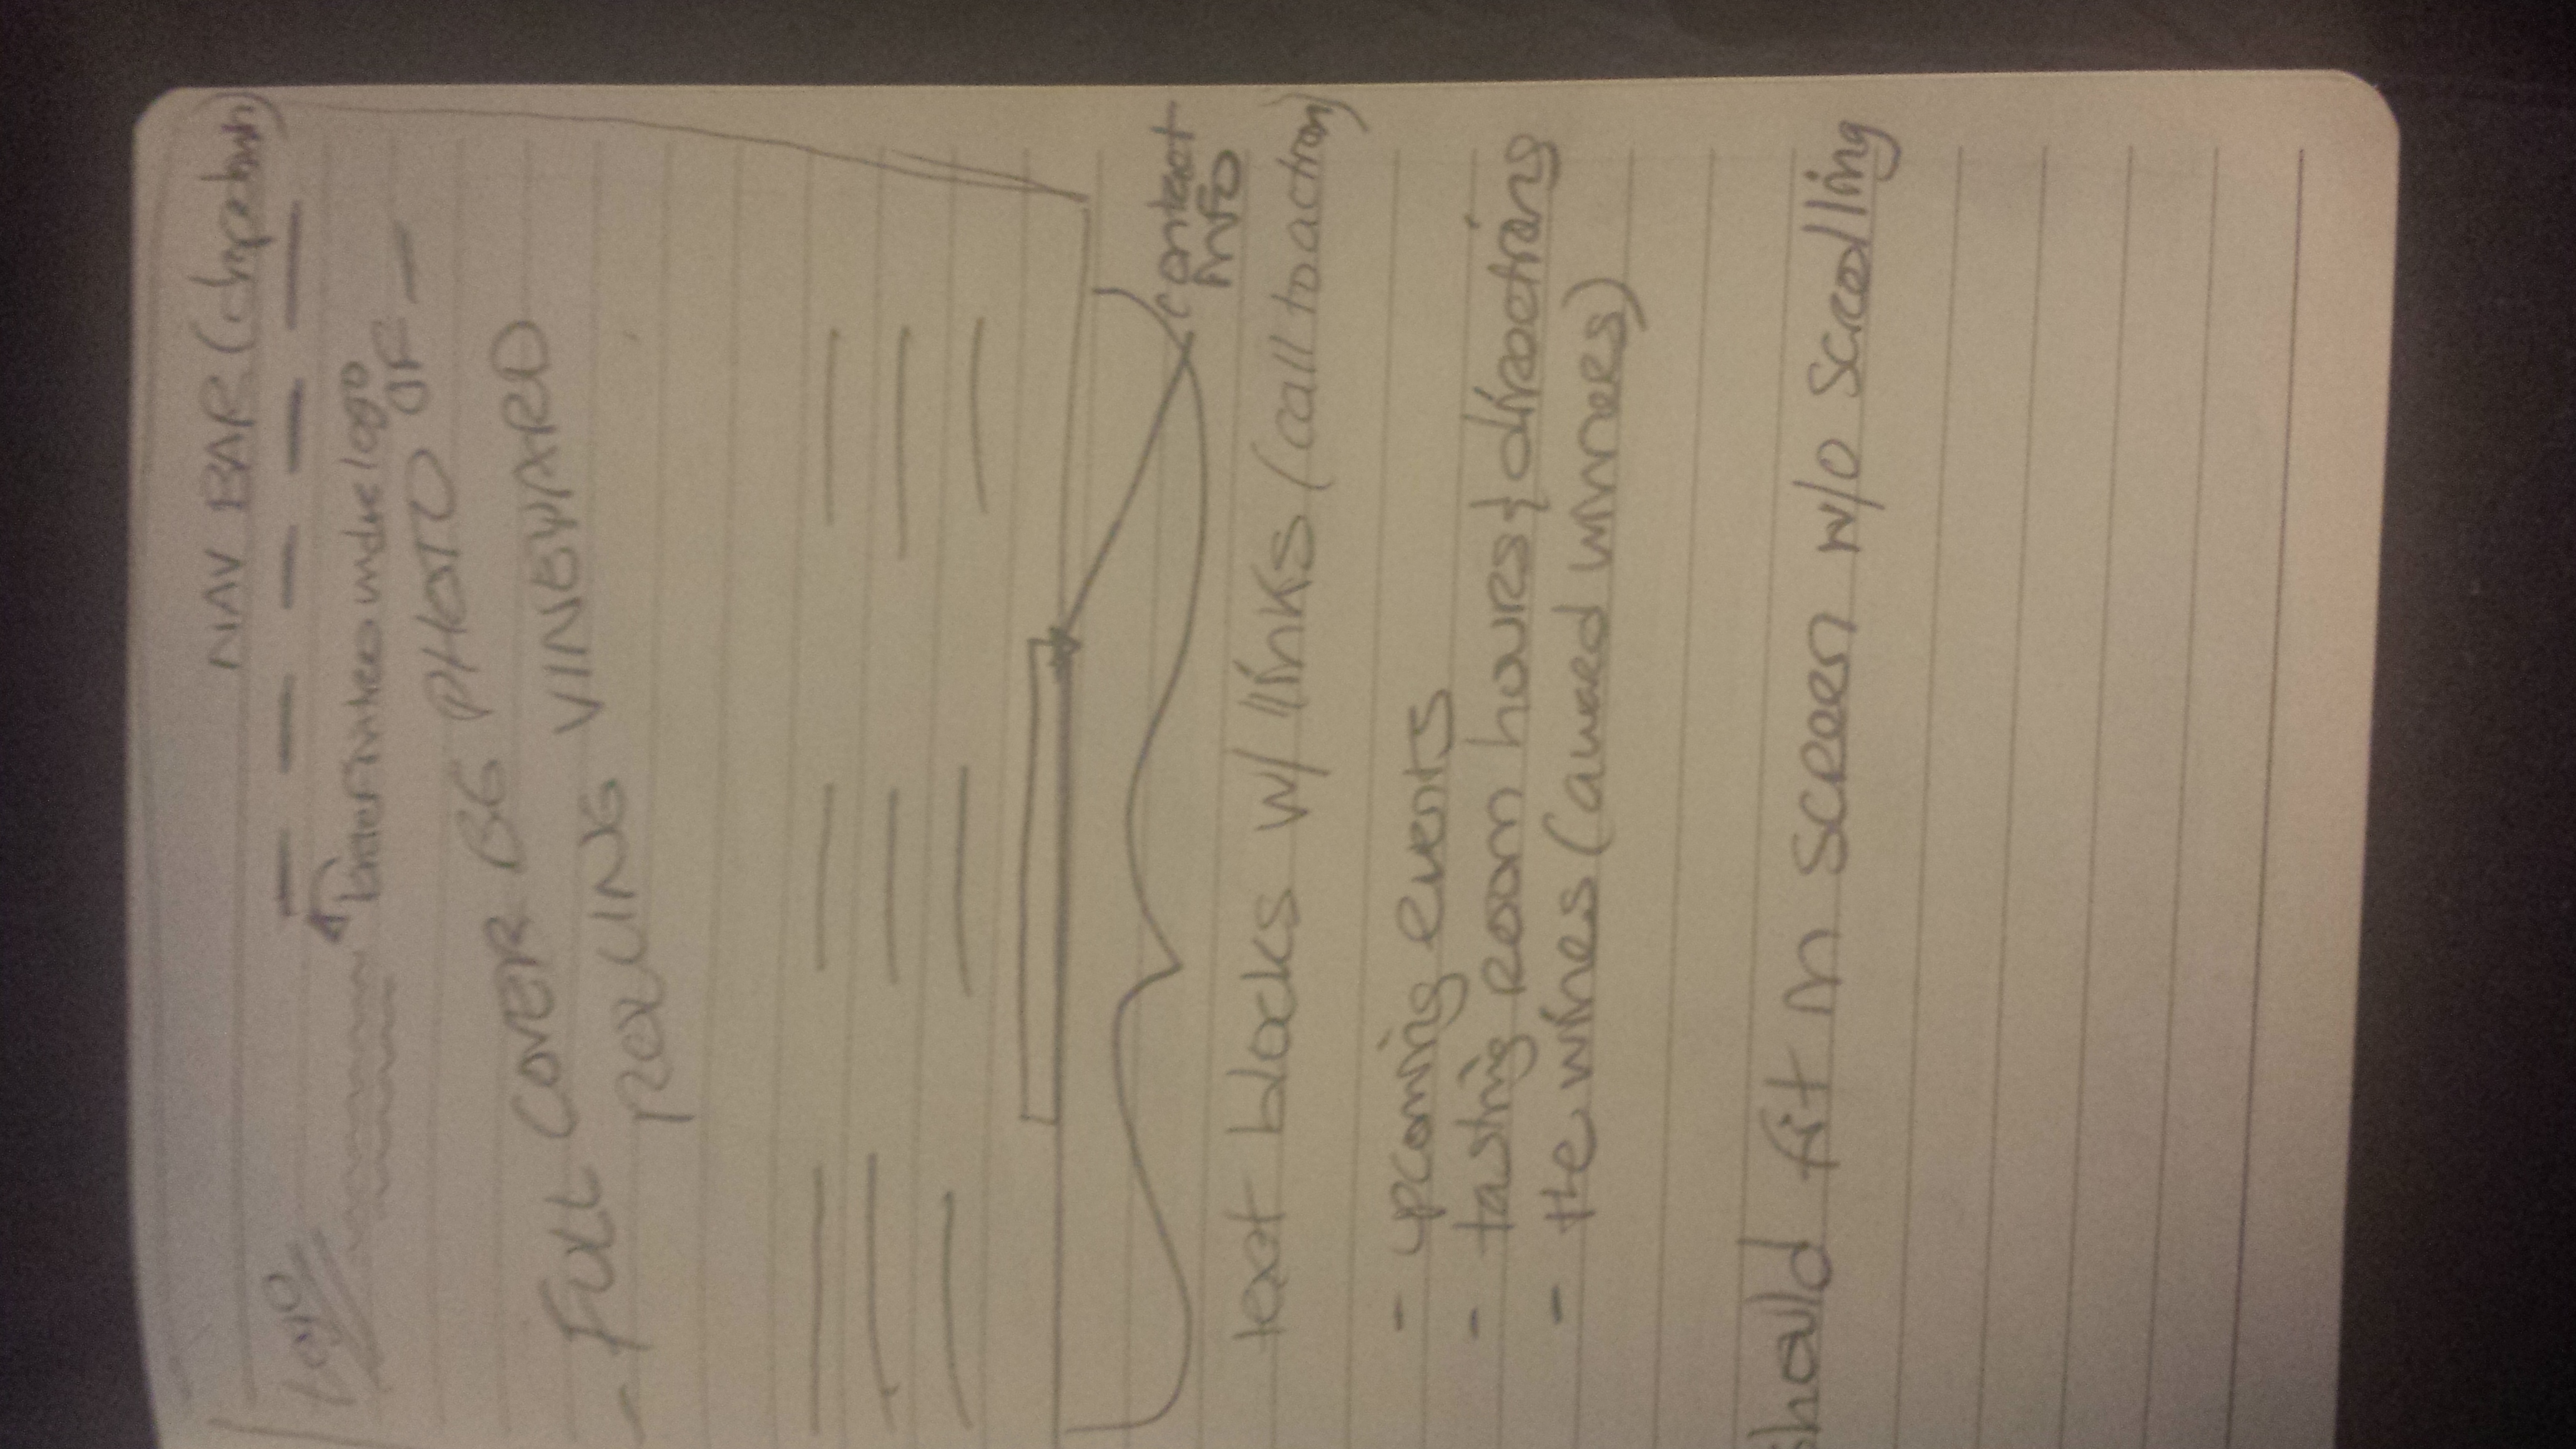 NAV BAR (dropdown)
Logo
brief intro under logo
- FULL COVER BG PHOTO OF -
ROLLING VINEYARD
contact
info
text blocks w/ links (call to action)
- upcoming events
- tasting room hours & directions
- the wines (award winners)
should fit in screen w/o scrolling